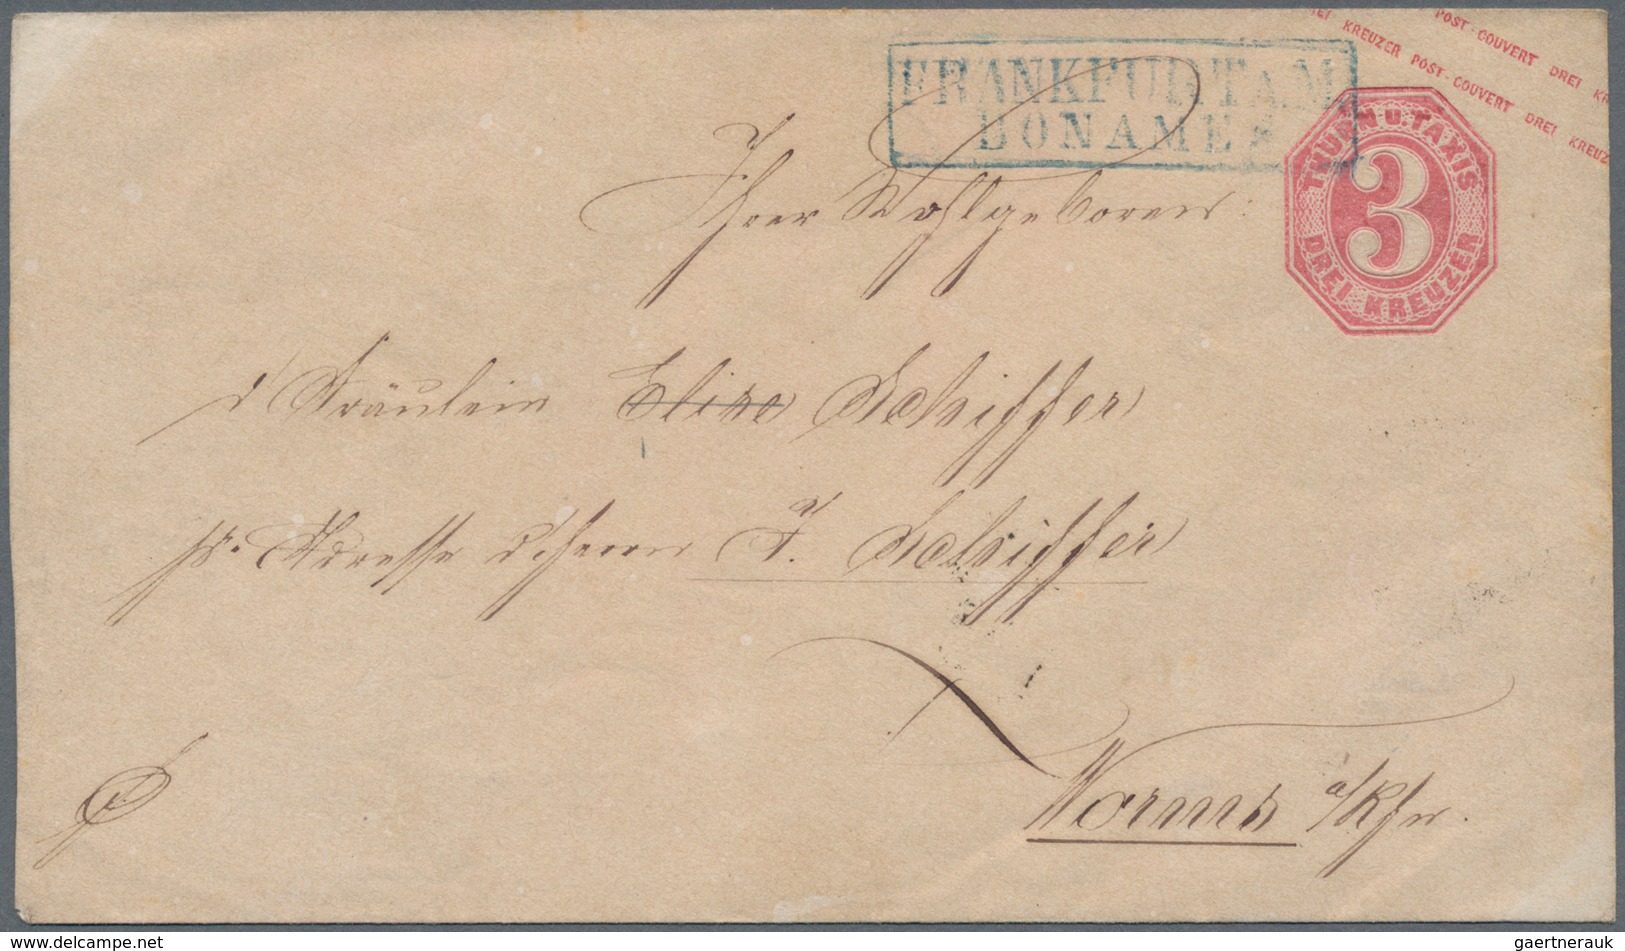 DREI KREUZER POST-COUVERT DREI KREUZ
POST-COUVERT DREI KR
FRANKFURT A.M.
BONAMES
THURN U. TAXIS
3
DREI KREUZER
Ihrer Wohlgeboren
d Fräulein Elise Schiffer
pr. Adresse d Herrn J. Schiffer
Worms a/Rhn.
delcampe.net
gaertnerauk